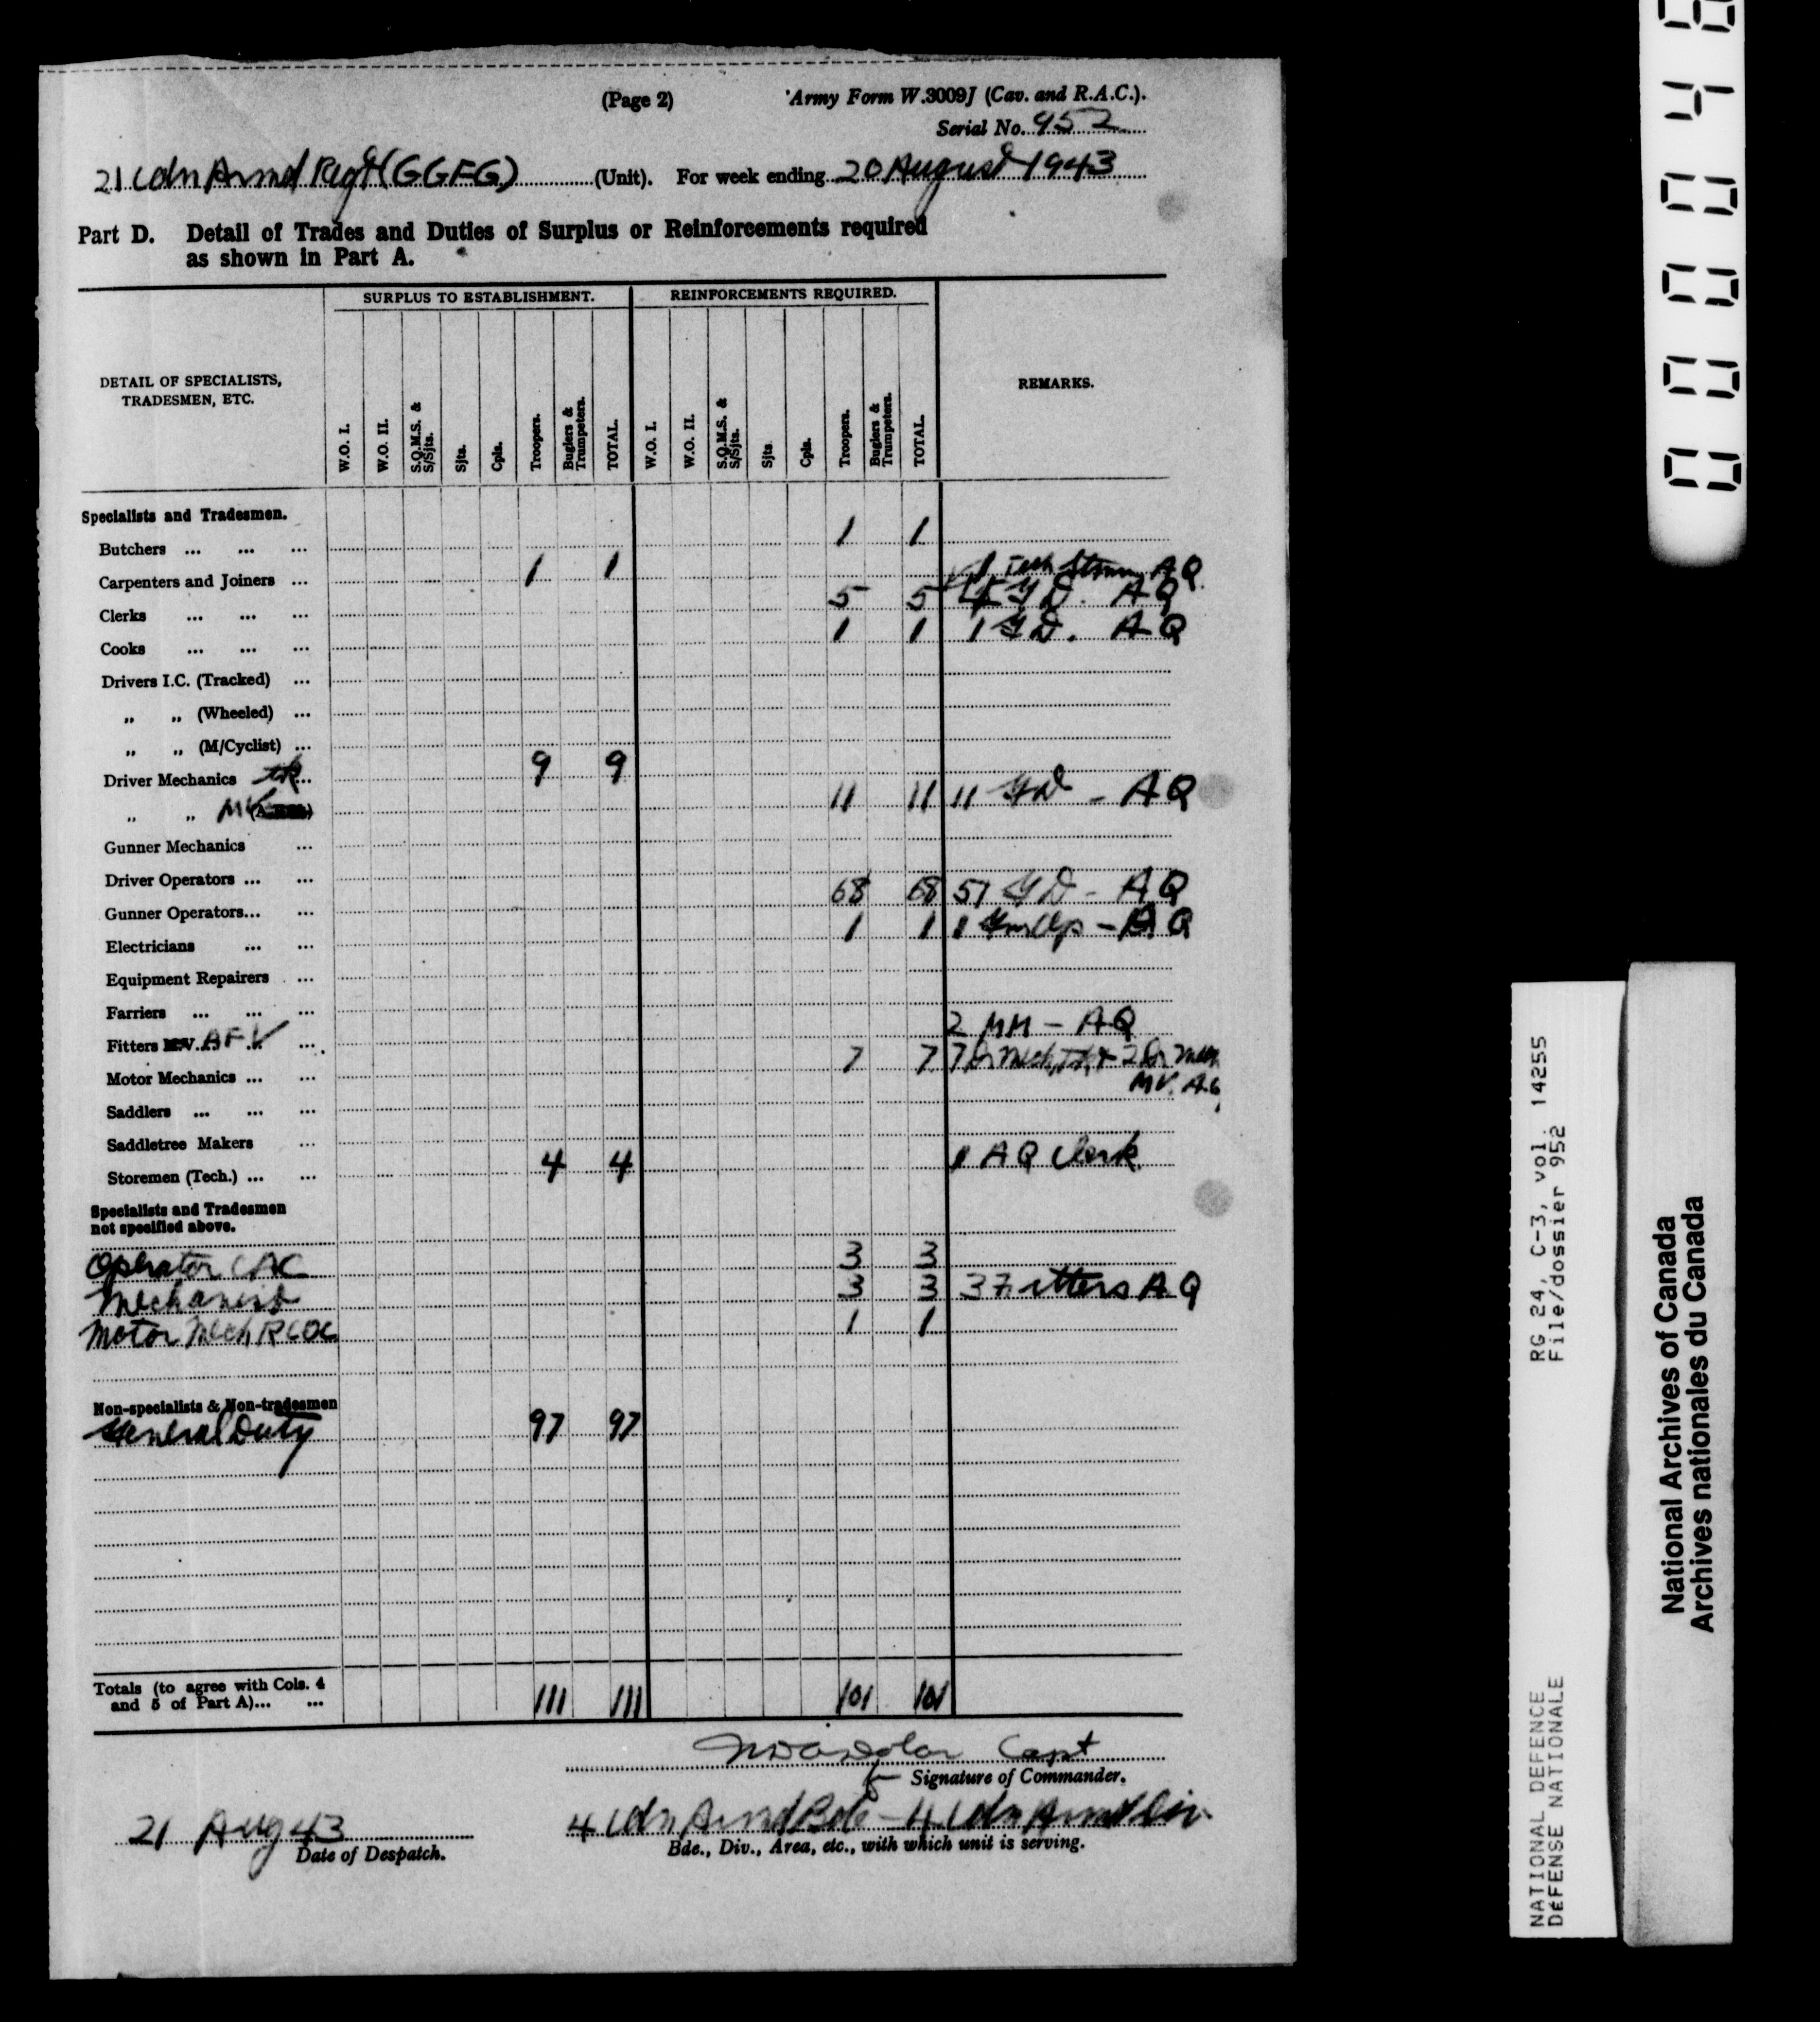 (Page 2) Army Form W.3009J (Cav. and R.A.C.).
Serial No. 952
21 Cdn Armd Regt (GGFG) (Unit). For week ending 20 August 1943
Part D. Detail of Trades and Duties of Surplus or Reinforcements required
as shown in Part A.
SURPLUS TO ESTABLISHMENT. REINFORCEMENTS REQUIRED.
DETAIL OF SPECIALISTS,
TRADESMEN, ETC.
REMARKS.
W.O. I. W.O. II. S.Q.M.S. & S/Sjts. Sjts. Cpls. Troopers. Buglers & Trumpeters. TOTAL. W.O. I. W.O. II. S.Q.M.S. & S/Sjts. Sjts Cpls. Troopers. Buglers & Trumpeters. TOTAL.
Specialists and Tradesmen.
Butchers ... ... ... 1 1
Carpenters and Joiners ... 1 1 1 Tech Storem AQ.
Clerks ... ... ... 5 5 4 GD. AQ
Cooks ... ... ... 1 1 1 GD. AQ
Drivers I.C. (Tracked) ...
„ „ (Wheeled) ...
„ „ (M/Cyclist) ...
Driver Mechanics tk... 9 9
„ „ MV 11 11 11 GD - AQ
Gunner Mechanics ...
Driver Operators ... ...
Gunner Operators... ... 68 68 57 GD - AQ
Electricians ... ... 1 1 1 Gnr Op - AQ
Equipment Repairers ...
Farriers ... ... ...
Fitters M.V. AFV ... ... 2 MM - AQ
Motor Mechanics ... ... 7 7 7 Dr Mech, Tk, & 2 Dr Mech
MV. AQ
Saddlers ... ... ...
Saddletree Makers ...
Storemen (Tech.) ... ... 4 4 1 AQ Clerk
Specialists and Tradesmen
not specified above.
Operator CAC 3 3
Mechanist 3 3 3 Fitters AQ
Motor Mech RCOC 1 1
Non-specialists & Non-tradesmen
General Duty 97 97
Totals (to agree with Cols. 4
and 5 of Part A)... ... 111 111 101 101
Capt
f Signature of Commander.
21 Aug 43 4 Cdn Armd Bde - 4 Cdn Armd Div.
Date of Despatch. Bde., Div., Area, etc., with which unit is serving.
000048
RG 24, C-3, vol. 14255
File/dossier 952
NATIONAL DEFENCE
DÉFENSE NATIONALE
National Archives of Canada
Archives nationales du Canada